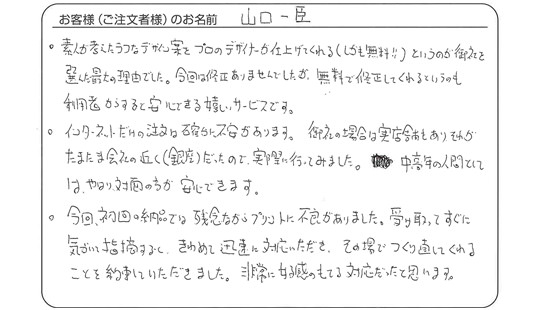 お客様（ご注文者様）のお名前 山口一臣
• 素人が考えたラフなデザイン案をプロのデザイナーが仕上げてくれる（しかも無料!!）というのが御社を
選んだ最大の理由でした。今回は修正ありませんでしたが、無料で修正してくれるというのも
利用者からすると安心できる嬉しいサービスです。
• インターネットだけの注文は確かに不安があります。御社の場合は実店舗もあり それが
たまたま会社の近く（銀座）だったので、実際に行ってみました。 中高年の人間としては
は、やはり対面の方が安心できます。
• 今回、初回の納品では残念ながらプリントに不良がありました。受け取ってすぐに
気がついて指摘すると、きわめて迅速に対応いただき、その場でつくり直してくれる
ことを約束していただきました。非常に好感のもてる対応だったと思います。